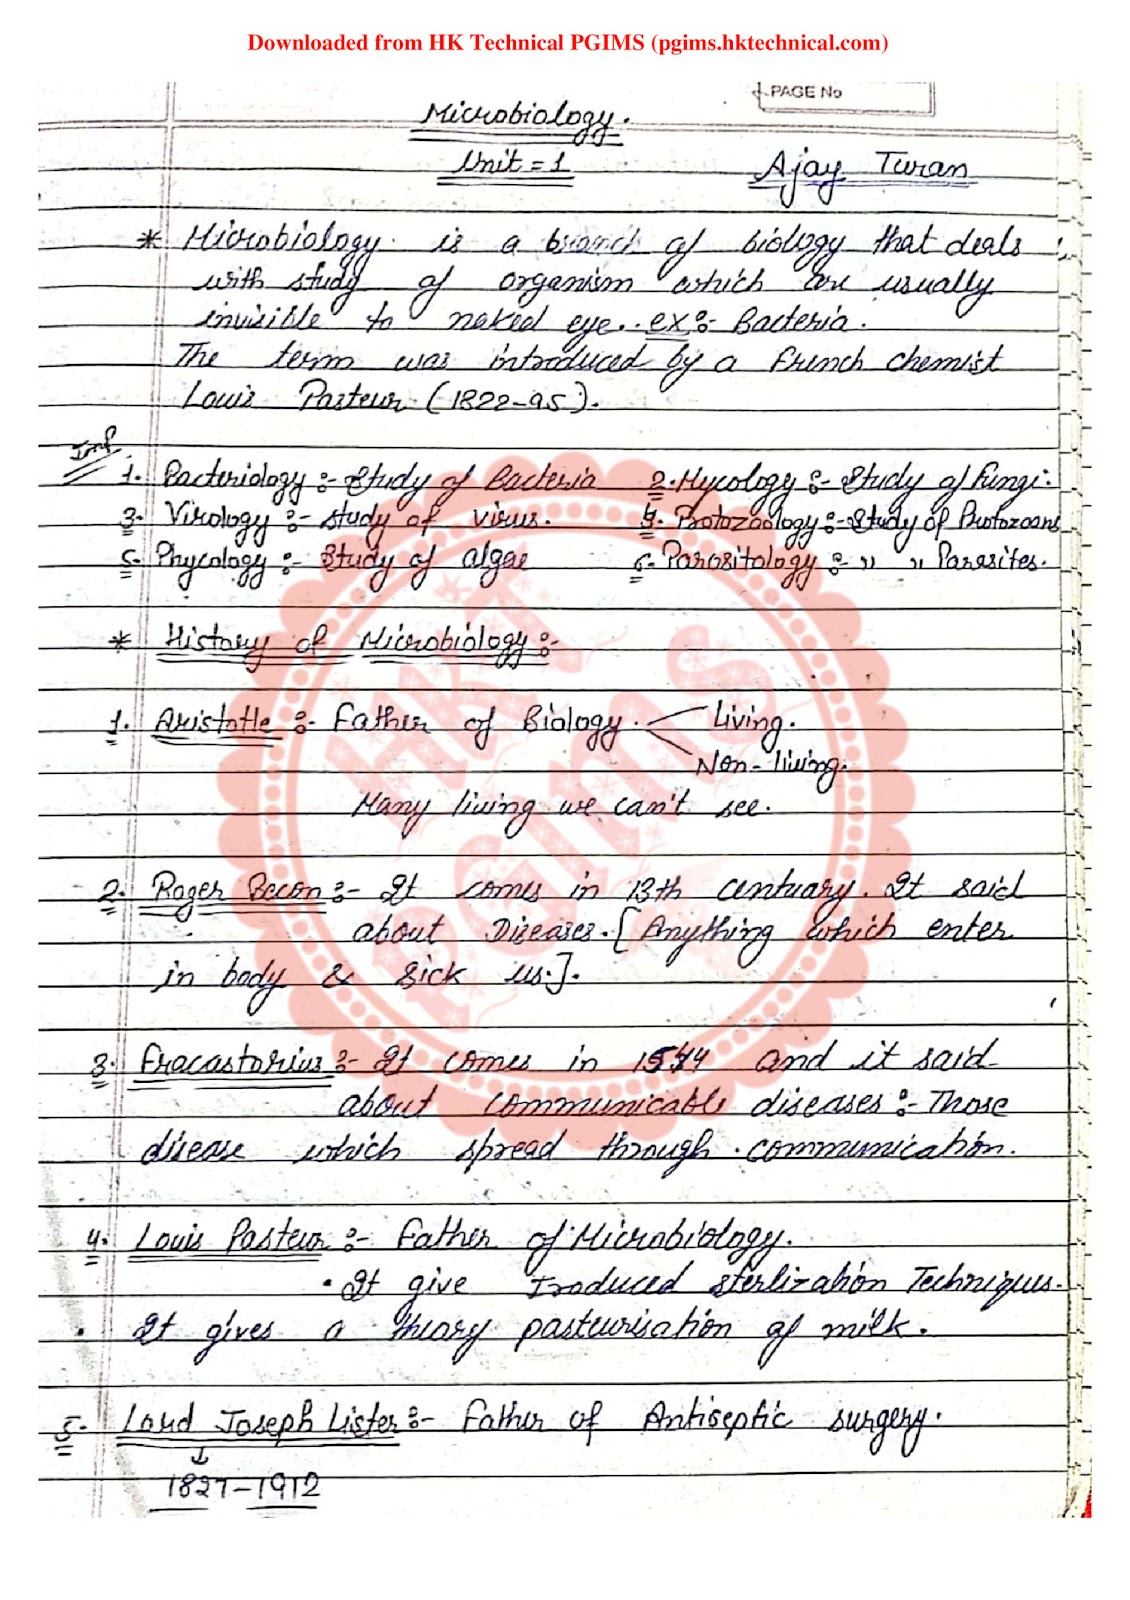 Downloaded from HK Technical PGIMS (pgims.hktechnical.com)
PAGE No
Microbiology.
Unit = 1 Ajay Turan
* Microbiology is a branch of biology that deals
with study of organism which are usually
invisible to naked eye. ex:- Bacteria.
The term was introduced by a french chemist
Louis Pasteur (1822-95).
Imp
1. Bacteriology :- Study of Bacteria 2. Mycology :- Study of Fungi.
3. Virology :- study of virus. 4. Protozoology :- Study of Protozoans
5. Phycology :- Study of algae 6. Parasitology :- " " Parasites.
* History of Microbiology :-
1. Aristotle :- Father of Biology. Living.
Non-living.
Many living we can't see.
2. Roger Becon :- It comes in 13th centuary. It said
about Diseases. [Anything which enter
in body & sick us.].
3. Fracastorius :- It comes in 1544 and it said
about communicable diseases :- Those
disease which spread through communication.
4. Louis Pasteur :- Father of Microbiology.
• It give Iroduced sterlization Techniques.
• It gives a theory pasteurisation of milk.
5. Lord Joseph Lister :- Father of Antiseptic surgery.
↓
1827-1912
HKT
PGIMS